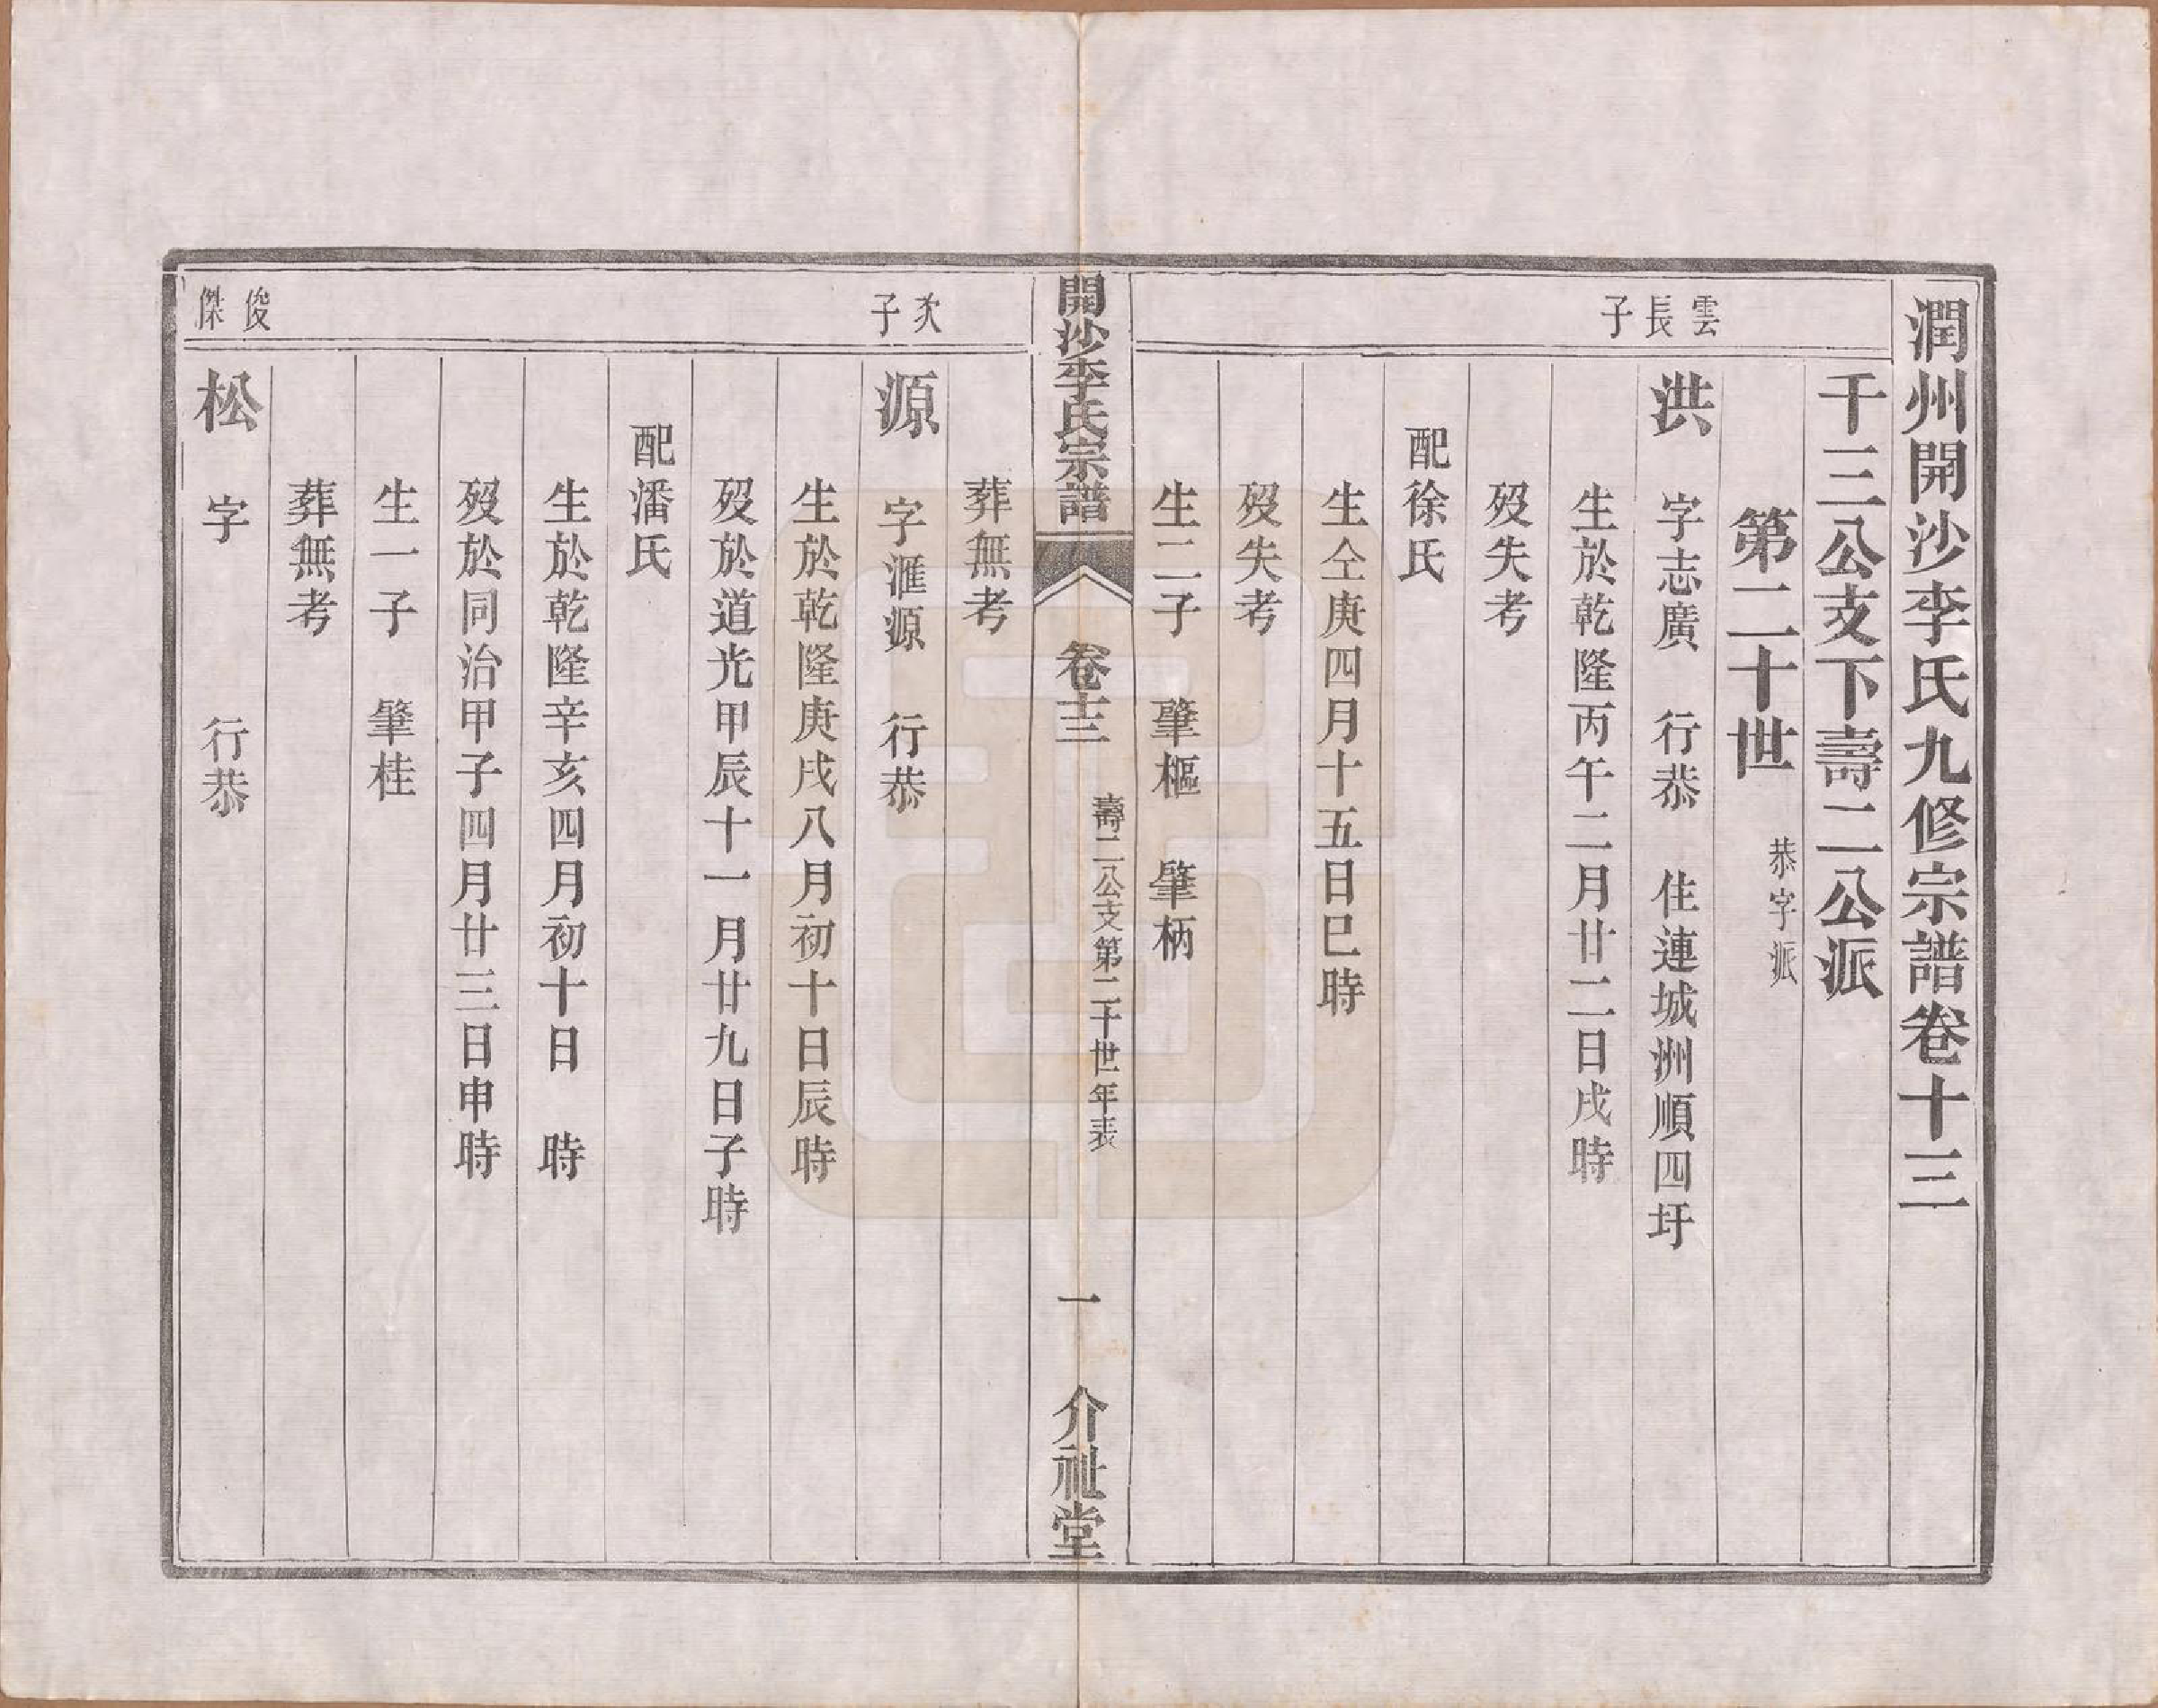 潤州開沙李氏九修宗譜卷十三
千三公支下壽二公派
第二十世 恭字派
雲長子
洪 字志廣 行恭 住連城洲順四圩
生於乾隆丙午二月廿二日戌時
歿失考
配徐氏
生仝庚四月十五日巳時
歿失考
生二子 肇樞 肇柄
開沙李氏宗譜 卷十三 壽二公支第二十世年表 一 介祉堂
葬無考
次子
源 字滙源 行恭
生於乾隆庚戌八月初十日辰時
歿於道光甲辰十一月廿九日子時
配潘氏
生於乾隆辛亥四月初十日 時
歿於同治甲子四月廿三日申時
生一子 肇桂
葬無考
俊傑
松 字 行恭